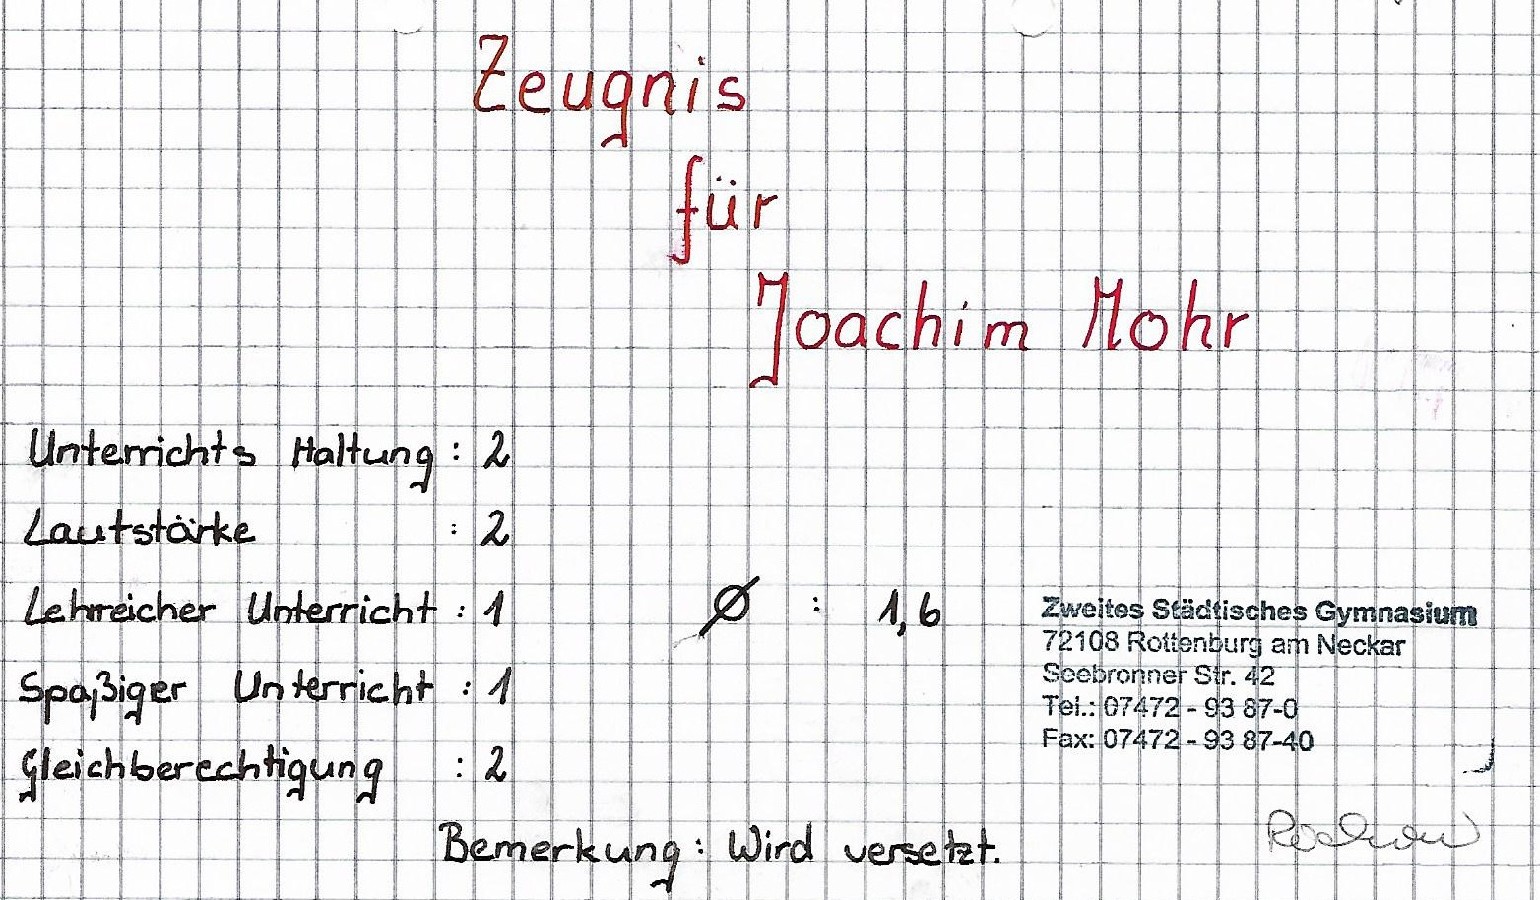 Zeugnis
für
Joachim Mohr
Unterrichts Haltung : 2
Lautstärke : 2
Lehrreicher Unterricht : 1
Ø : 1,6
Spaßiger Unterricht : 1
Gleichberechtigung : 2
Bemerkung : Wird versetzt.
Zweites Städtisches Gymnasium
72108 Rottenburg am Neckar
Seebronner Str. 42
Tel.: 07472 - 93 87-0
Fax: 07472 - 93 87-40